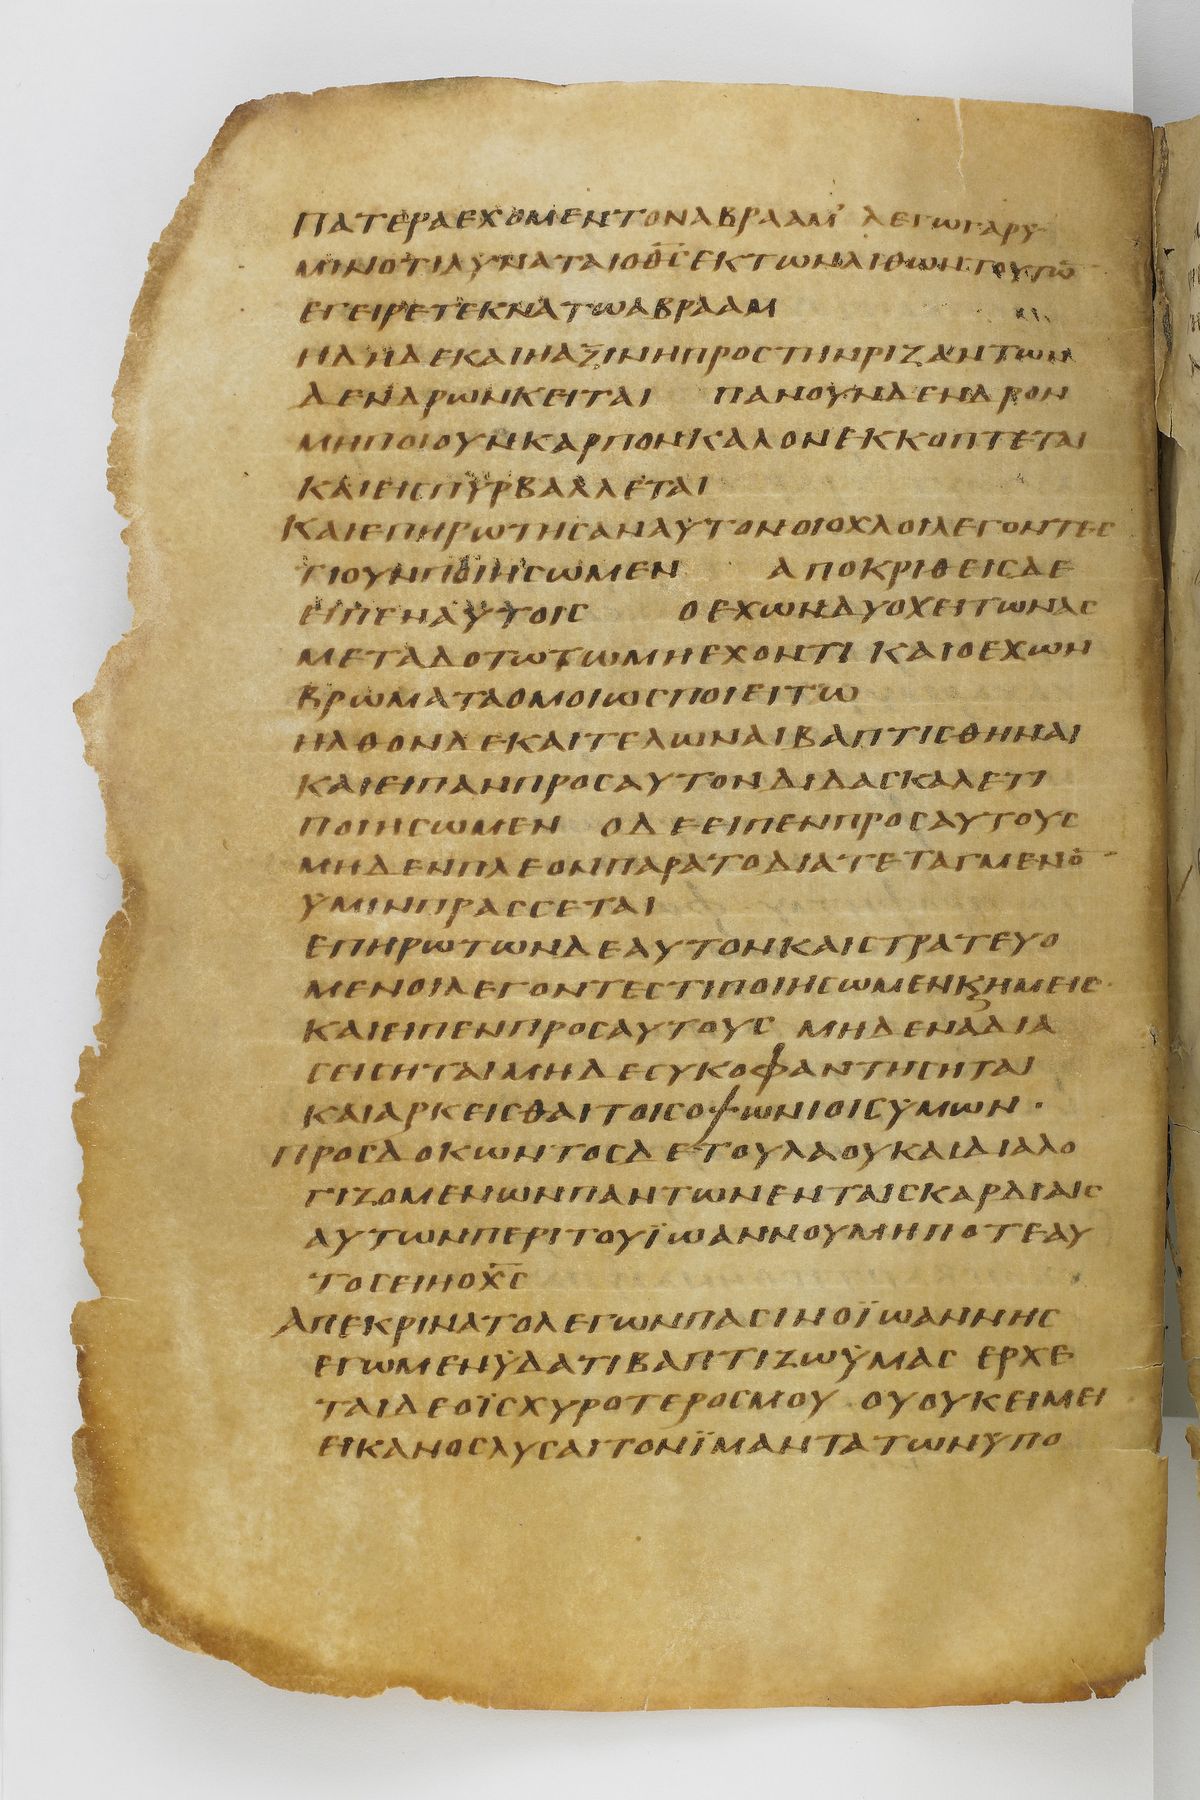 ΠΑΤΕΡΑΕΧΟΜΕΝΤΟΝΑΒΡΑΑΜ' ΛΕΓΩΓΑΡΥ
ΜΙΝΟΤΙΔΥΝΑΤΑΙΟΘ̅Ϲ̅ΕΚΤΩΝΛΙΘΩΝΤΟΥΤΩ̅
ΕΓΕΙΡΕΤΕΚΝΑΤΩΑΒΡΑΑΜ
ΗΔΗΔΕΚΑΙΗΑΞΙΝΗΠΡΟϹΤΗΝΡΙΖΑΝΤΩΝ
ΔΕΝΔΡΩΝΚΕΙΤΑΙ ΠΑΝΟΥΝΔΕΝΔΡΟΝ
ΜΗΠΟΙΟΥΝΚΑΡΠΟΝΚΑΛΟΝΕΚΚΟΠΤΕΤΑΙ
ΚΑΙΕΙϹΠΥΡΒΑΛΛΕΤΑΙ
ΚΑΙΕΠΗΡΩΤΗϹΑΝΑΥΤΟΝΟΙΟΧΛΟΙΛΕΓΟΝΤΕϹ
ΤΙΟΥΝΠΟΙΗϹΩΜΕΝ ΑΠΟΚΡΙΘΕΙϹΔΕ
ΕΙΠΕΝΑΥΤΟΙϹ ΟΕΧΩΝΔΥΟΧΕΙΤΩΝΑϹ
ΜΕΤΑΔΟΤΩΤΩΜΗΕΧΟΝΤΙ ΚΑΙΟΕΧΩΝ
ΒΡΩΜΑΤΑΟΜΟΙΩϹΠΟΙΕΙΤΩ
ΗΛΘΟΝΔΕΚΑΙΤΕΛΩΝΑΙΒΑΠΤΙϹΘΗΝΑΙ
ΚΑΙΕΙΠΑΝΠΡΟϹΑΥΤΟΝΔΙΔΑϹΚΑΛΕΤΙ
ΠΟΙΗϹΩΜΕΝ ΟΔΕΕΙΠΕΝΠΡΟϹΑΥΤΟΥϹ
ΜΗΔΕΝΠΛΕΟΝΠΑΡΑΤΟΔΙΑΤΕΤΑΓΜΕΝΟ̅
ΥΜΙΝΠΡΑϹϹΕΤΑΙ
ΕΠΗΡΩΤΩΝΔΕΑΥΤΟΝΚΑΙϹΤΡΑΤΕΥΟ
ΜΕΝΟΙΛΕΓΟΝΤΕϹΤΙΠΟΙΗϹΩΜΕΝΚϗΜΕΙϹ
ΚΑΙΕΙΠΕΝΠΡΟϹΑΥΤΟΥϹ ΜΗΔΕΝΑΔΙΑ
ϹΕΙϹΗΤΑΙΜΗΔΕϹΥΚΟΦΑΝΤΗϹΗΤΑΙ
ΚΑΙΑΡΚΕΙϹΘΑΙΤΟΙϹΟΨΩΝΙΟΙϹΥΜΩΝ·
ΠΡΟϹΔΟΚΩΝΤΟϹΔΕΤΟΥΛΑΟΥΚΑΙΔΙΑΛΟ
ΓΙΖΟΜΕΝΩΝΠΑΝΤΩΝΕΝΤΑΙϹΚΑΡΔΙΑΙϹ
ΑΥΤΩΝΠΕΡΙΤΟΥΪΩΑΝΝΟΥΜΗΠΟΤΕΑΥ
ΤΟϹΕΙΗΟΧ̅Ϲ̅
ΑΠΕΚΡΙΝΑΤΟΛΕΓΩΝΠΑϹΙΝΟΪΩΑΝΝΗϹ
ΕΓΩΜΕΝΫΔΑΤΙΒΑΠΤΙΖΩΫΜΑϹ ΕΡΧΕ
ΤΑΙΔΕΟΪϹΧΥΡΟΤΕΡΟϹΜΟΥ ΟΥΟΥΚΕΙΜΕΙ
ΕΙΚΑΝΟϹΛΥϹΑΙΤΟΝΪΜΑΝΤΑΤΩΝΫΠΟ